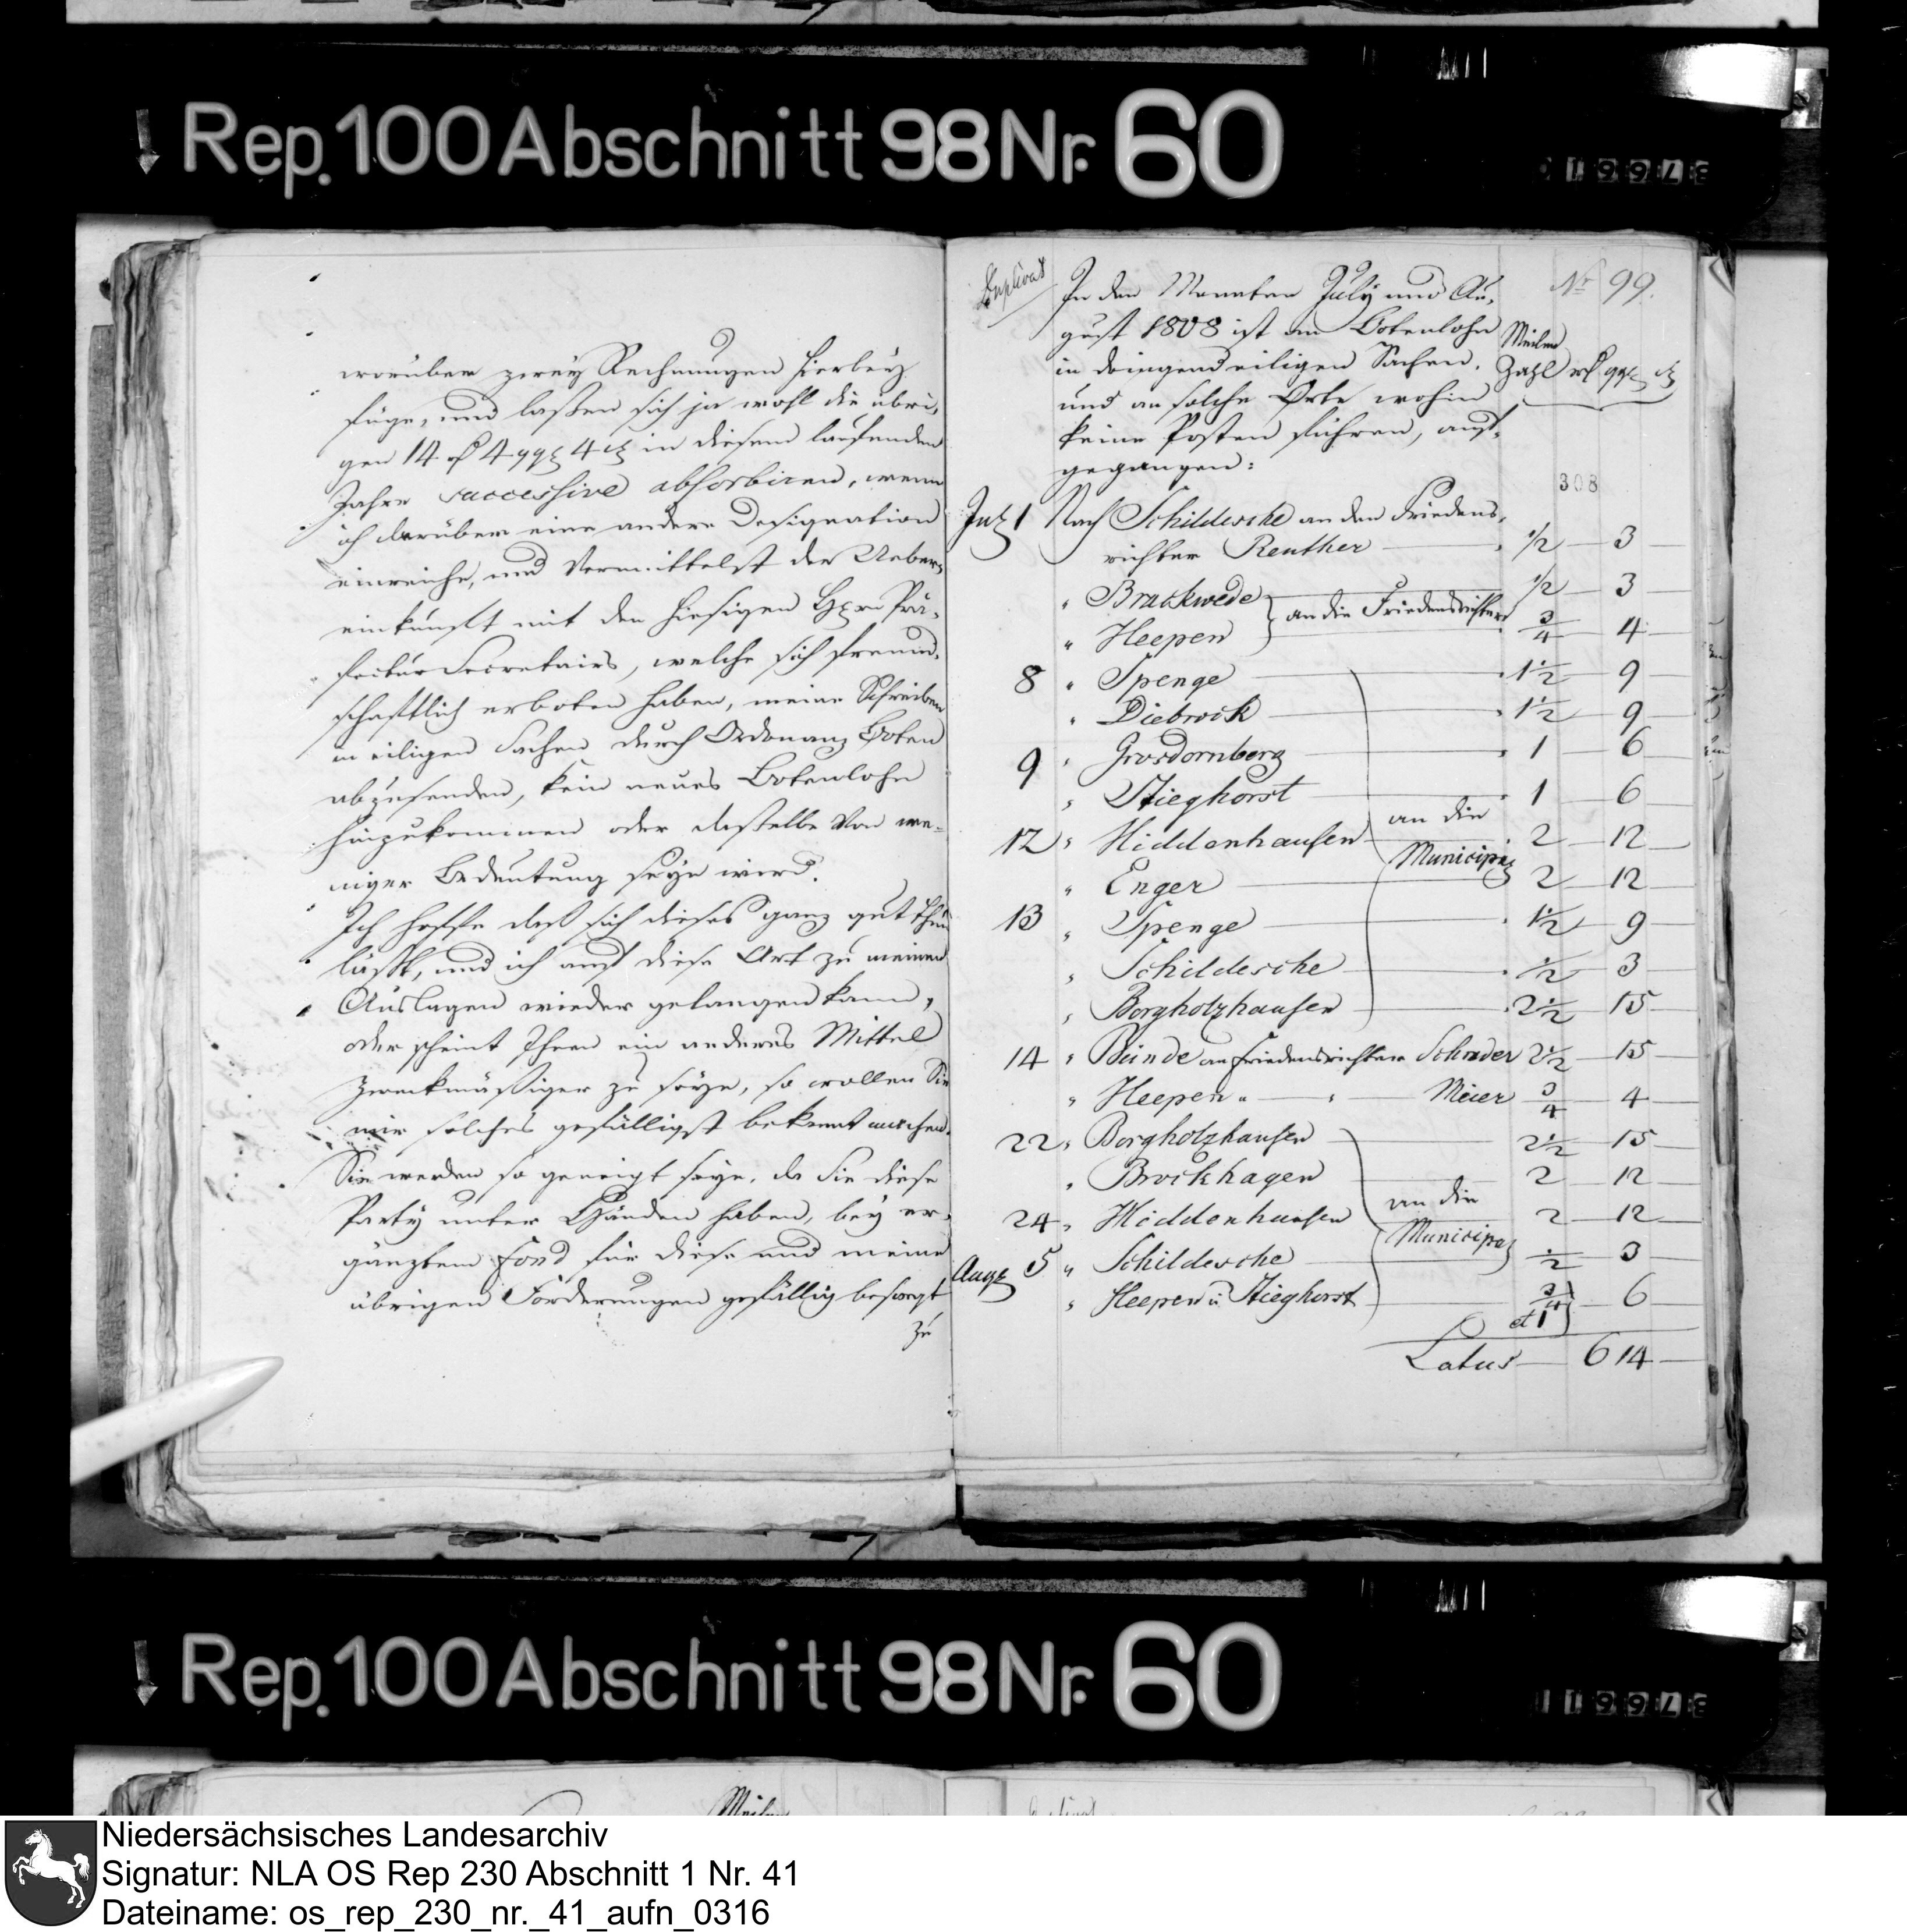 Rep. 100 Abschnitt 98 Nr. 60
worüber zwey Rechnungen hierbey
füge, und laßen sich ja wohl die übri,
gen 14 rl 4 ggr 4 d in diesem laufenden
Jahre successive absorbiren, wenn
ich darüber eine andere Designation
einreiche, und Vermittelst der Ueber,
einkunft mit den hiesigen Herrn Prä,
fectur Secretairs, welche sich freund,
schaftlich erboten haben, meine Schreiben
in eiligen Sachen durch Ordonanz Boten
abzusenden, kein neues Botenlohn
hinzukommen oder daßelbe von we-
niger Bedeutung seyn wird.
Ich hoffe daß sich dieses ganz gut thun
läßt, und ich auf diese Art zu meinen
Auslagen wieder gelangen kann,
oder scheint Ihnen ein anderes Mittel
zweckmäßiger zu seyn, so wollen Sie
mir solches gefälligst bekannt machen.
Sie werden so geneigt seyn, da Sie diese
Party unter Händen haben, bey er,
gänztem Fond für diese und meine
übrigen Forderungen gefällig besorgt
zu
Duplicat
No 99.
In den Monaten July und Au,
gust 1808 ist an Botenlohn
in dringend eiligen Sachen,
und an solche Orte wohin
keine Posten führen, auf,
gegangen:
Meilen
Zahl rl ggr d
308
Jul 1 Nach Schildesche an den Friedens,
richter Reuther 1/2 3
" Brackwede 1/2 3
an die Friedensrichter
" Heepen 3/4 4
8 " Spenge 1 1/2 9
" Diebrock 1 1/2 9
9 " Grosdornberg 1 6
" Stieghorst 1 6
an die
12 " Hiddenhausen 2 12
Municipal
" Enger 2 12
13 " Spenge 1 1/2 9
" Schildesche 1/2 3
" Borgholzhausen 2 1/2 15
14 " Bünde an Friedensrichter Schrader 2 1/2 15
" Heepen " " Meier 3/4 4
22 " Borgholzhausen 2 1/2 15
" Brockhagen 2 12
an die
24 " Hiddenhausen 2 12
Municipal
Aug 5 " Schildesche 1/2 3
" Heepen u Stieghorst 3/4 et 1 6
Latus 6 14
Rep. 100 Abschnitt 98 Nr. 60
Meilen
Niedersächsisches Landesarchiv
Signatur: NLA OS Rep 230 Abschnitt 1 Nr. 41
Dateiname: os_rep_230_nr._41_aufn_0316